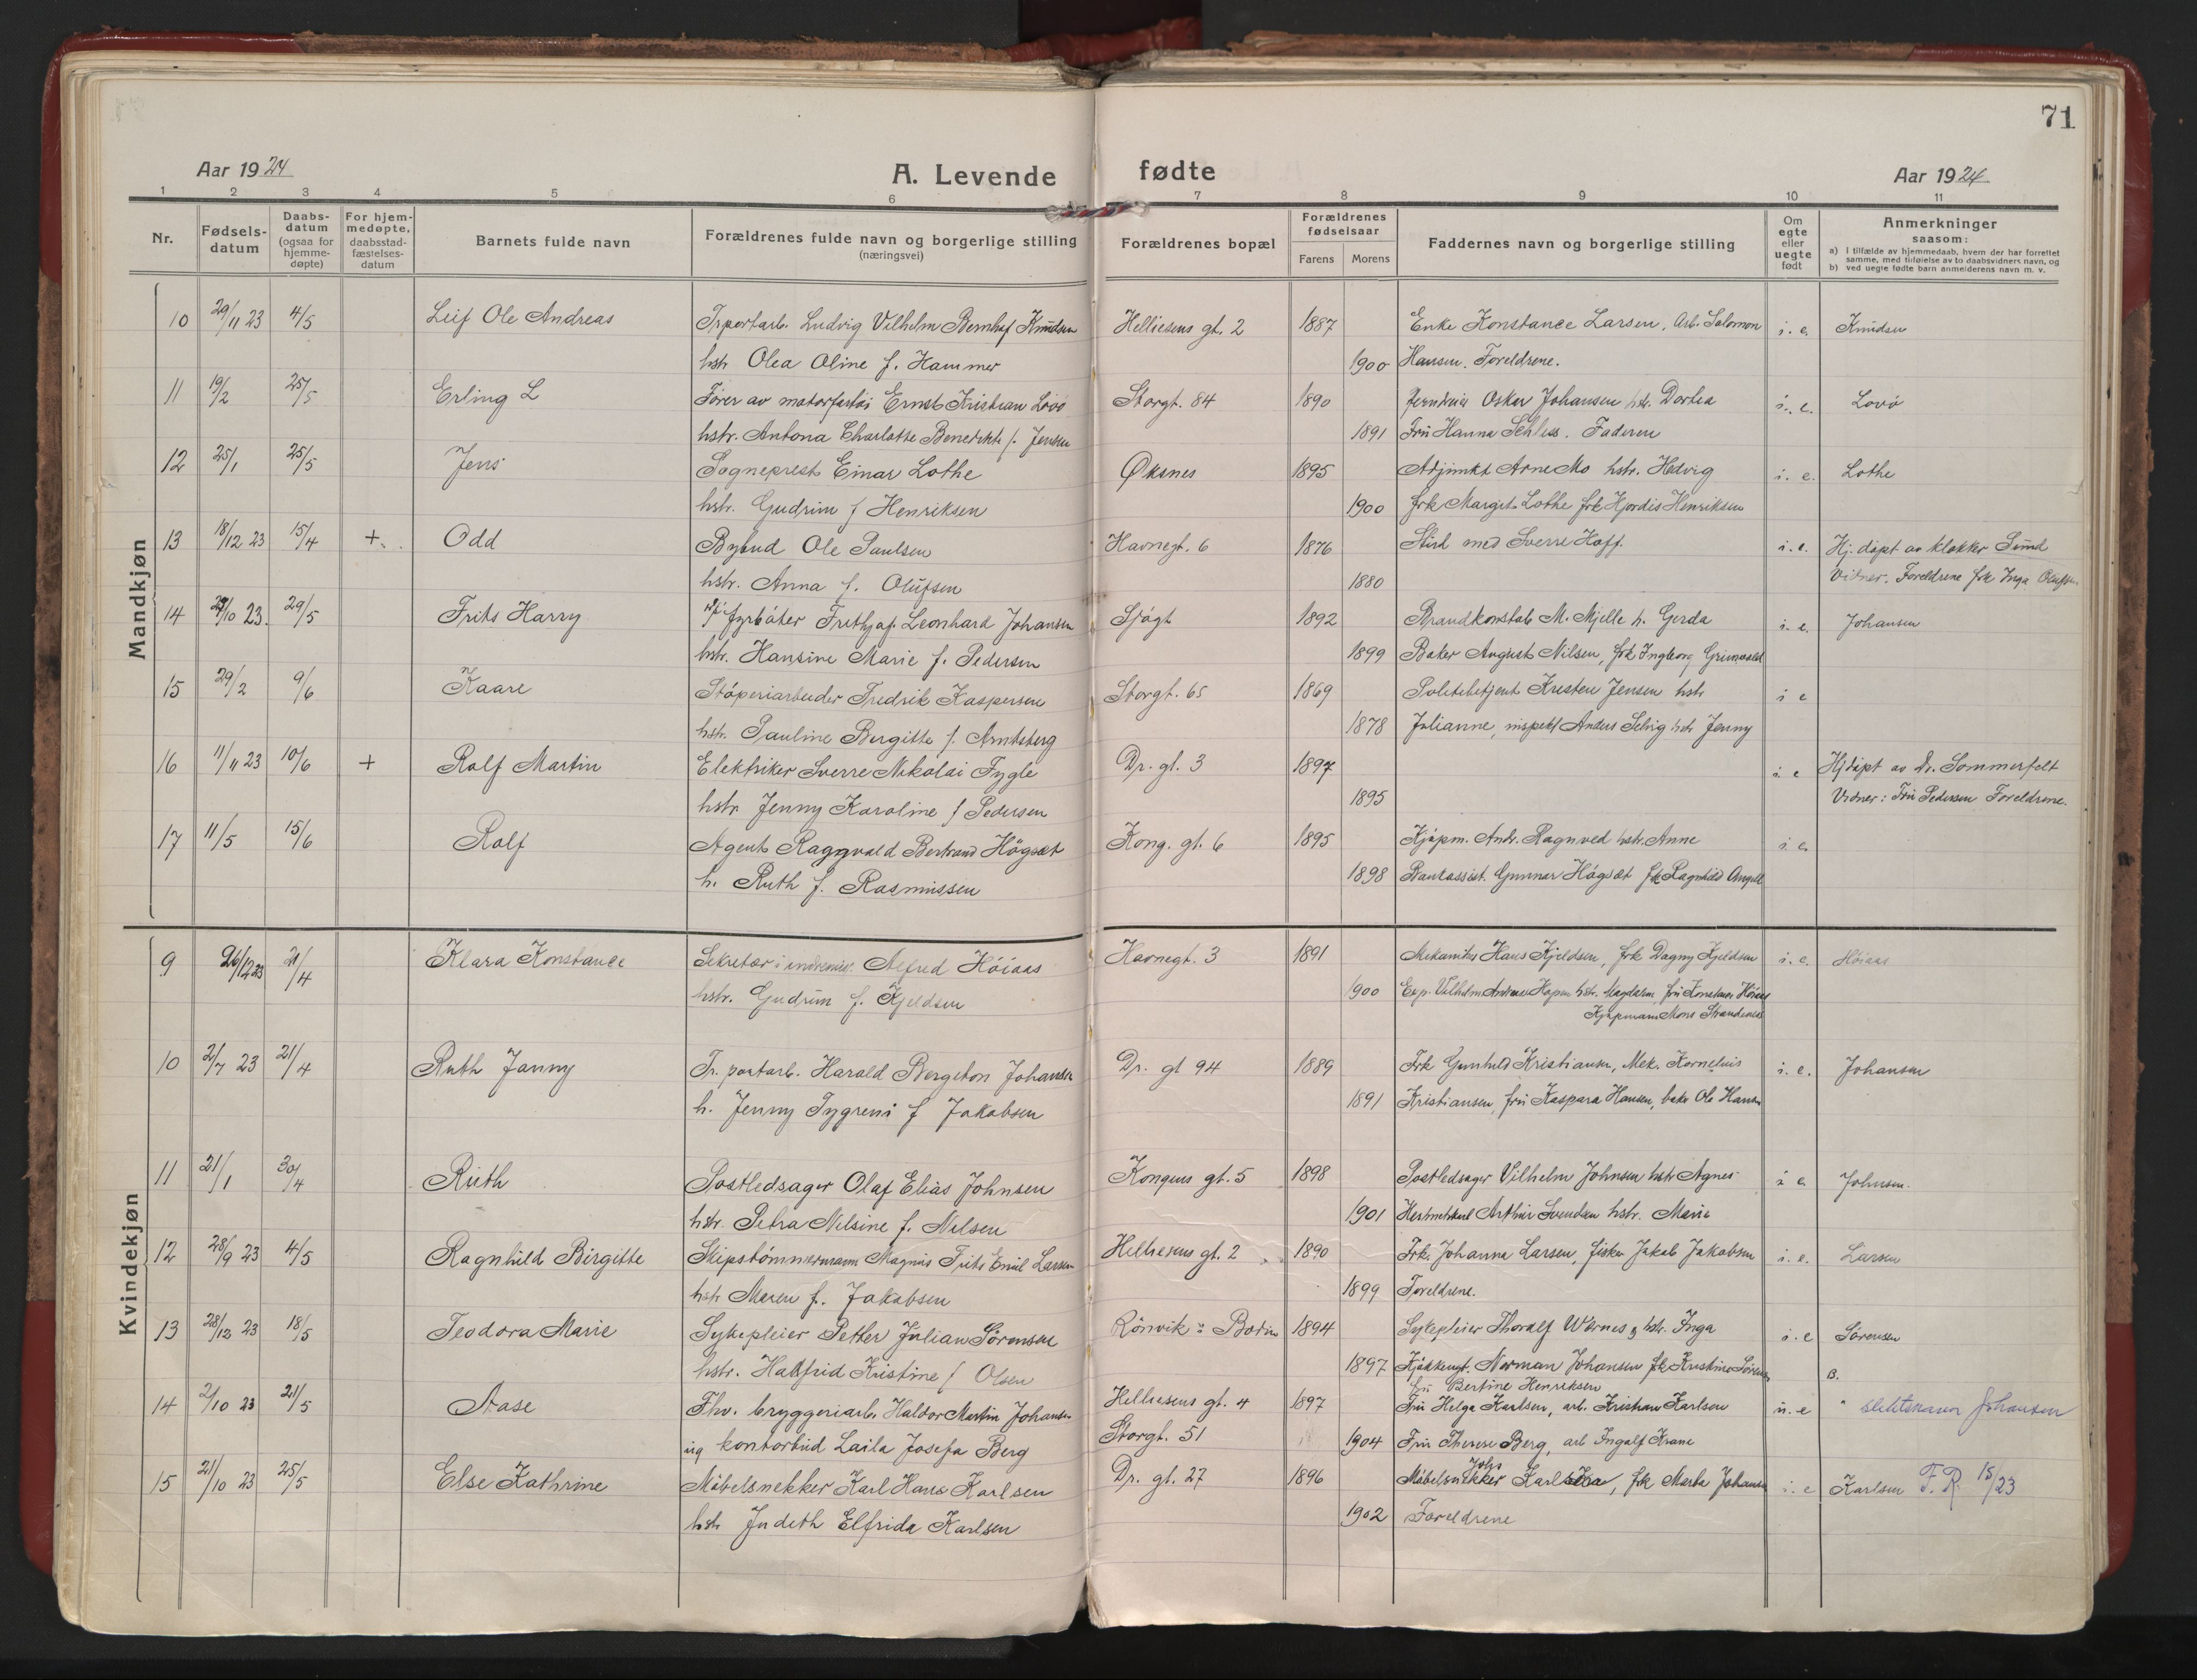 71
Aar 1924
A. Levende fødte
Aar 1924
1 2 3 4 5 6 7 8 9 10 11
Nr.
Fødsels-
datum
Daabs-
datum
(ogsaa for
hjemme-
døpte)
For hjem-
medøpte,
daabsstad-
fæstelses-
datum
Barnets fulde navn
Forældrenes fulde navn og borgerlige stilling
(næringsvei)
Forældrenes bopæl
Forældrenes
fødselsaar
Farens Morens
Faddernes navn og borgerlige stilling
Om
egte
eller
uegte
født
Anmerkninger
saasom:
a) i tilfælde av hjemmedaab, hvem der har forrettet
samme, med tilføielse av to daabsvidners navn, og
b) ved uegte fødte barn anmelderens navn m. v.
Mandkjøn
10 29/11 23 4/5 Leif Ole Andreas Trportarb. Ludvig Vilhelm Bernhof Knudsen Helliesens gt. 2 1887 Enke Konstance Larsen, Arb. Salomon i. e. Knudsen
hstr Olea Oline f. Hammer 1900 Hansen. Foreldrene.
11 19/2 25/5 Erling L Fører av motorfartøi Ernst Kristian Lovø Storgt. 84 1890 Oskar Johansen hstr. Dorthea i. e. Lovø
hstr. Antona Charlotte Benedikte f. Jensen 1891 Fru Hanna Schless. Faderen
12 25/1 25/5 Jens Sogneprest Einar Lothe Øksnes 1895 Adjunkt Arne Mo hstr. Hedvig i. e. Lothe
hstr. Gudrun f Henriksen 1900 frk Margit Lothe frk Hjordis Henriksen
13 18/12 23 15/4 +. Odd Bybud Ole Paulsen Havnegt. 6 1876 Stird med Sverre Hoff. i. e. Hj. døpt av klokker Sund
hstr. Anna f. Olufsen 1880 Vidner. Foreldrene frk Inga Olufsen
14 /10 23. 29/5 Frits Harry fyrbøter Frithjof Leonhard Johansen Sjøgt 1892 Brandkonstab M. Mjelle h. Gerda i. e. Johansen
hstr. Hansine Marie f. Pedersen 1899 Baker August Nilsen, frk Ingeborg Grünwald
15 29/2 9/6 Kaare Støperiarbeider Fredrik Kaspersen Storgt. 65 1869 Politibetjent Kristen Jensen hstr i e
hstr. Pauline Bergitte f. Arntsberg 1878 Julianne, inspekt Anders Selvig hstr Jenny
16 11/11 23 10/6 + Rolf Martin Elektriker Sverre Nikolai Fygle Dr. gt. 3 1897 i e Hjdøpt av Dr. Sommerfelt
hstr Jenny Karoline f Pedersen 1895 Vidner: Fru Pedersen Foreldrene.
17 11/5 15/6 Rolf Agent Raggvald Bertrand Høgset Kong. gt. 6 1895 Kjøpm. Andr. Ragnved hstr. Anne i e.
h. Ruth f. Rasmussen 1898 Bankassist. Gunnar Høgset frk Ragnhild Angell
Kvindekjøn
9 26/12 23 21/4 Klara Konstance Sekretær i Alfred Høiaas Havnegt. 3 1891 Mekaniker Hans Kjeldsen, frk Dagny Kjeldsen i. e. Høiaas
hstr. Gudrun f. Kjeldsen 1900 Exp. Vilhelm Andreas Hagen hstr. Magdalene, fru Konstance Høiaas
Kjøpmann Mons Strandenes
10 2/7 23 21/4 Ruth Janny Tr. portarb. Harald Bergeton Johansen Dr. gt 94 1889 Frk Gunhild Kristiansen, Mek. Kornelius i. e. Johansen
h. Jenny Sygreni f Jakobsen 1891 Kristiansen, fru Kaspara Hansen, baker Ole Hansen
11 21/1 30/4 Ruth Postledsager Olaf Elias Johnsen Kongens gt. 5 1898 Postledsager Vilhelm Johnsen hstr Agnes i e. Johnsen.
hstr. Petra Nilsine f. Nilsen 1901 Arthur Svendsen hstr. Marie
12 28/9 23 4/5 Ragnhild Birgitte Skipstømmermann Magnus Frits Emil Larsen Helliesens gt. 2 1890 Frk. Johanna Larsen, fisker Jakob Jakobsen i. e. Larsen
hstr Maren f. Jakobsen 1899 Foreldrene.
13 28/12 23 18/5 Teodora Marie Sykepleier Petter Julian Sørensen Rønvik i Bodin 1894 Sykepleier Thoralf Wærnes og hstr. Inga i. e Sørensen
hstr. Halfrid Kristine f Olsen 1897 Kjøkkengt. Norman Johansen frk Kristine Sørensen
fru Bertine Henriksen B.
14 2/10 23 21/5 Aase Fhv. bryggeriarb. Haldor Martin Johansen Helliesens gt. 4 1897 Fru Helga Karlsen, arb. Kristian Karlsen u. e " slektsnavn Johansen
ug kontorbud Laila Josefa Berg Storgt. 51 1904 Fru Therese Berg, arb Ingolf Krane
15 21/10 23 25/5 Else Kathrine Møbelsnekker Karl Hans Karlsen Dr. gt. 27 1896 Møbelsnekker Johs Karlsen, frk Marta Johansen i. e Karlsen F. R. 15/23
hstr Judeth Elfrida Karlsen 1902 Foreldrene